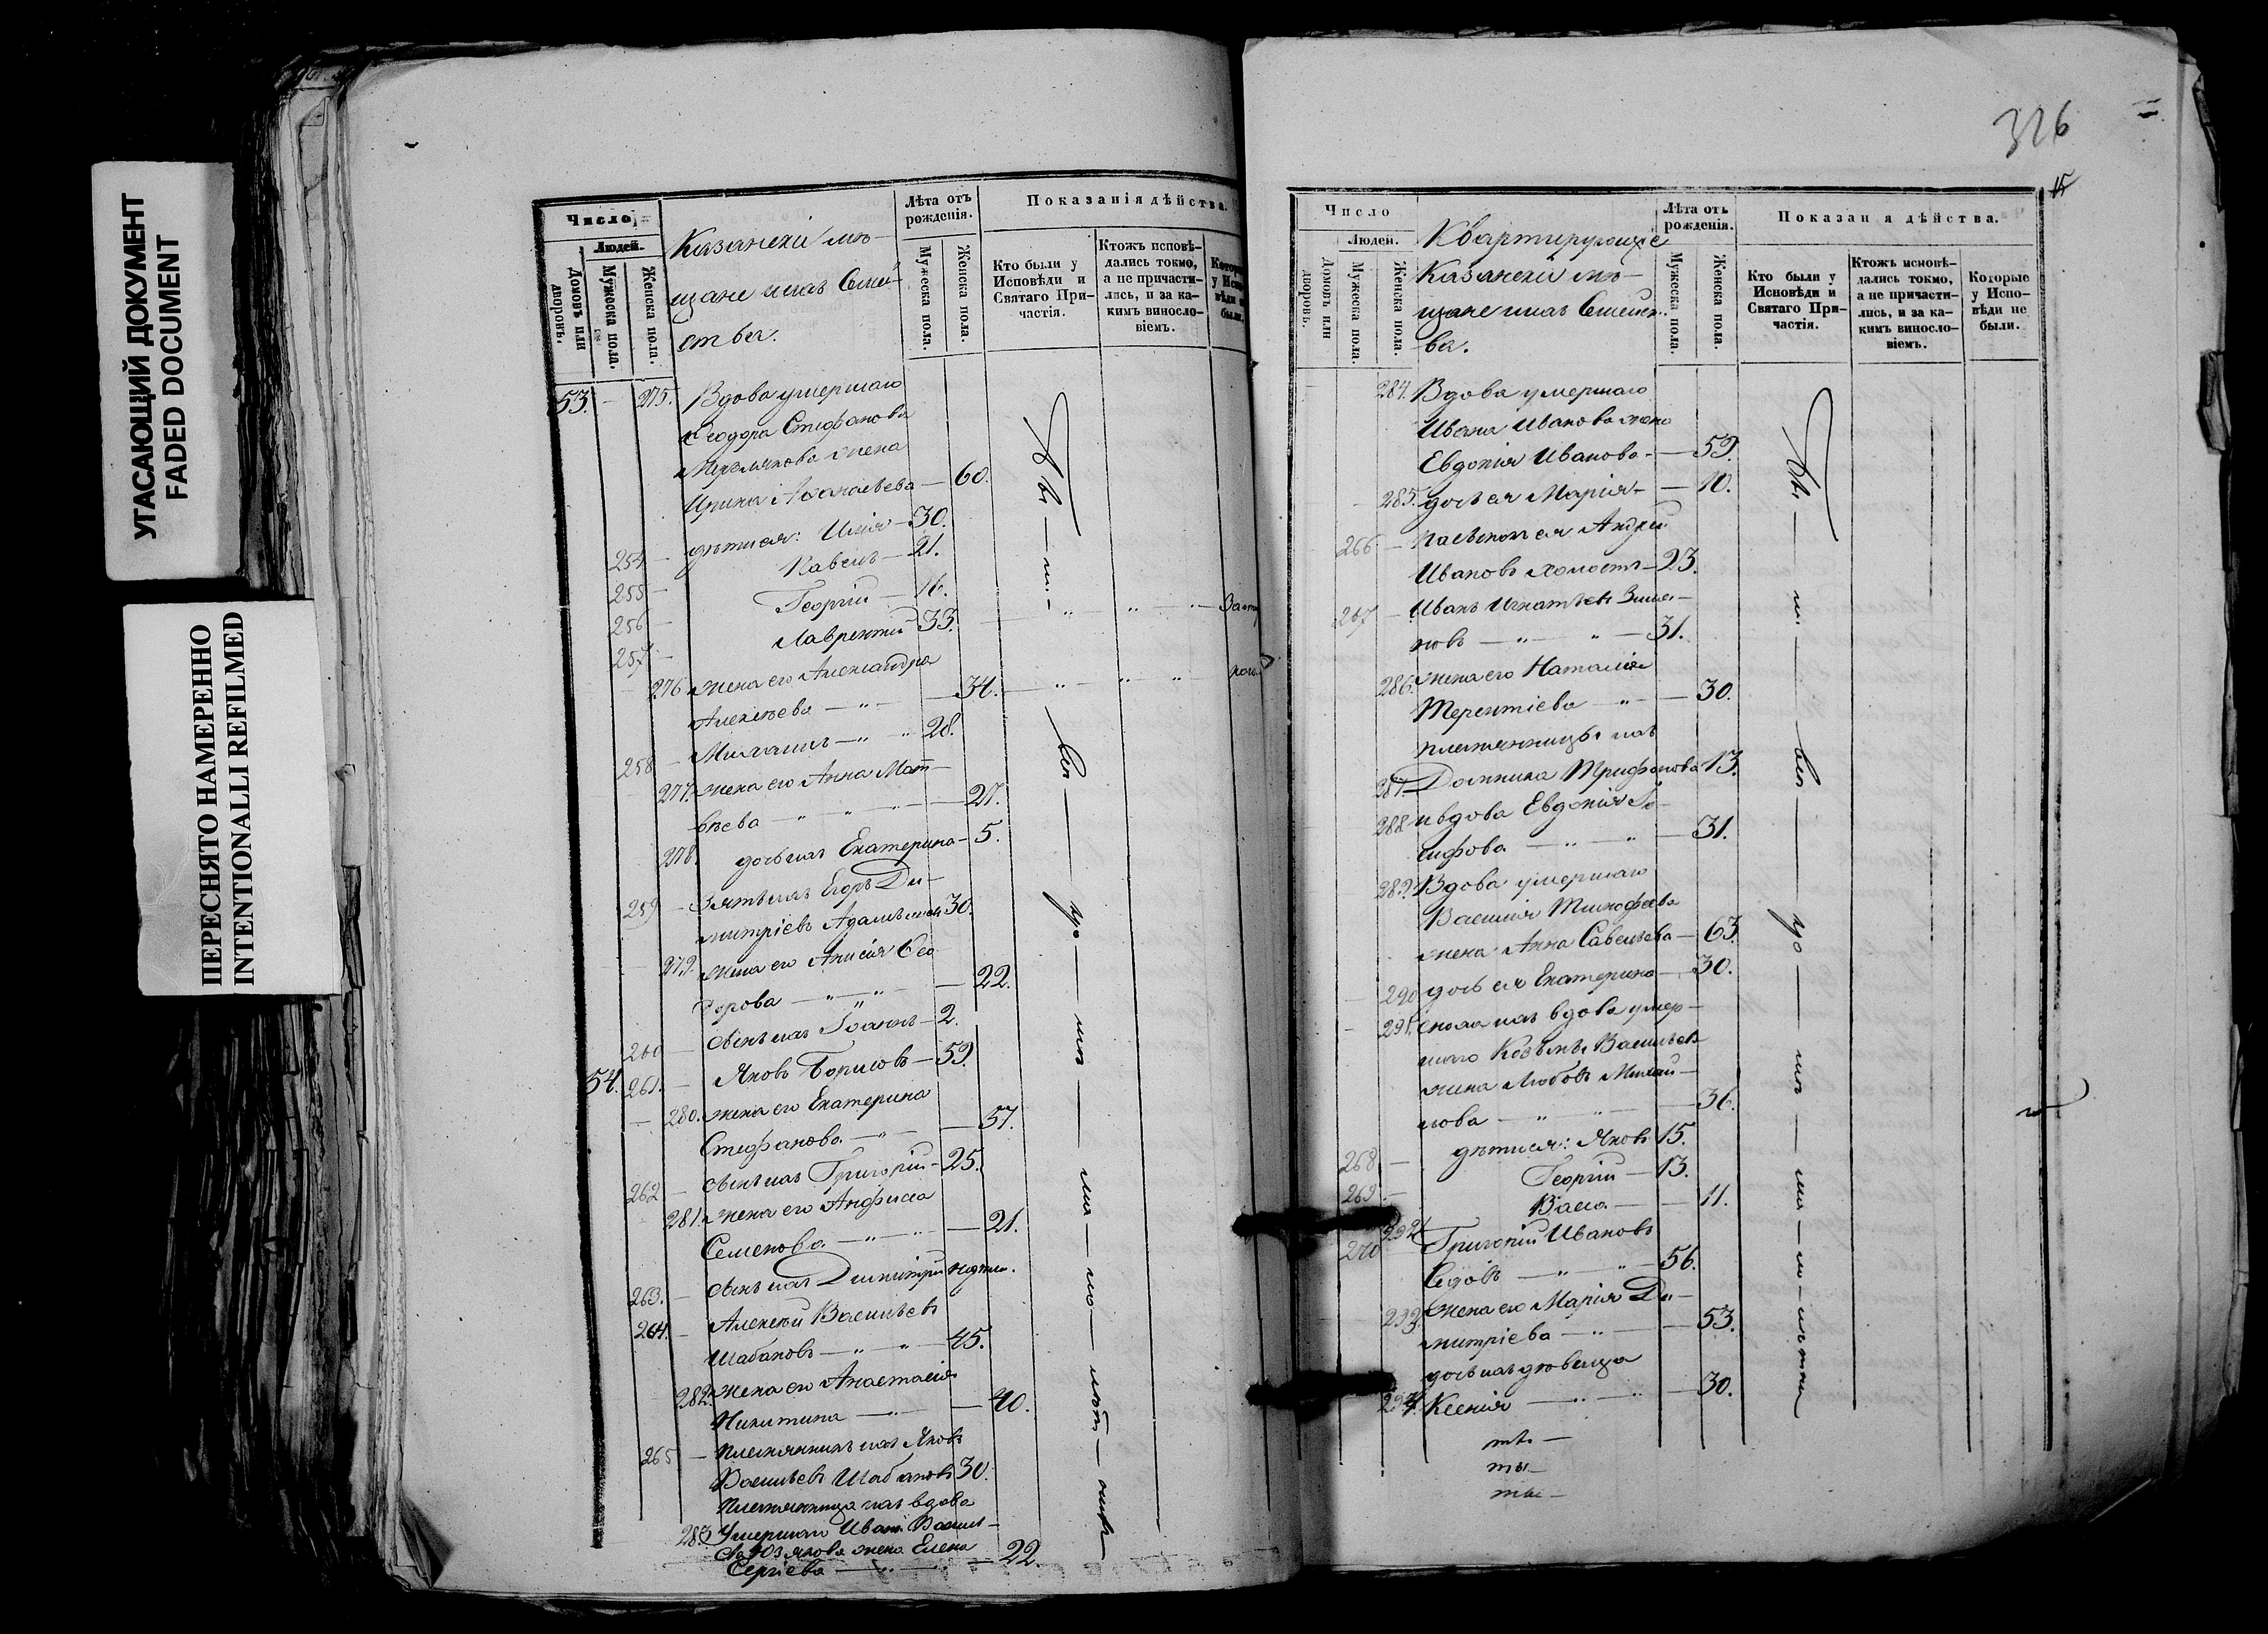 УГАСАЮЩИЙ ДОКУМЕНТ
FADED DOCUMENT
ПЕРЕСНЯТО НАМЕРЕННО
INTENTIONALLI REFILMED
Число
Людей.
Домовъ или дворовъ.
Мужеска пола.
Женска пола.
Казанскіи мѣ-
щане ихъ Семей-
ства.
Лѣта отъ рожденія.
Мужеска пола.
Женска пола.
Показанія дѣйства.
Кто были у Исповѣди и Святаго Причастія.
Ктожъ исповѣ-
дались токмо,
а не причасти-
лись, и за ка-
кимъ виносло-
віемъ.
53. — 275. Вдова умершаго
Ѳеодора Стефанова
жена
Ирина Аѳанасьева — 60.
254 — дѣти ея: Илія — 30.
255 — Павелъ — 21.
256 — Георгій — 16.
257 — Лаврентій 33.
276 жена его Александра
Алексѣева — 34.
258 — Михаилъ — 28.
277. жена его Анна Мат-
вѣева — 27.
278. дочь ихъ Екатерина — 5.
259 — Зять ихъ Егоръ Ди-
митріевъ 30.
279. жена его Анисія Ѳео-
дорова — 22.
260 — сынъ ихъ Іоаннъ — 2.
54. 261. — Яковъ Борисовъ — 59.
— 280. жена его Екатерина
Стефанова — 57.
262 — сынъ ихъ Григорій — 25.
281. жена его Анфиса
Семенова — 21.
263. — сынъ ихъ Димитрій
264. — Алексѣй Васильевъ
Шабановъ — 45.
282. жена его Анастасія
Никитина — 40.
265 — племянникъ ихъ Яковъ
Васильевъ Шабановъ 30.
племянница ихъ вдова
283. умершаго Ивана Василь-
жена Елена
Сергіева — 22.
326
15
Число
Людей.
Домовъ или дворовъ.
Мужеска пола.
Женска пола.
Квартирующіе
Казанскіи мѣ-
щане ихъ Семейст-
ва.
Лѣта отъ рожденія.
Мужеска пола.
Женска пола.
Показан я дѣйства.
Кто были у
Исповѣди и
Святаго При-
частія.
Ктожъ исповѣ-
дались токмо,
а не причасти-
лись, и за ка-
кимъ виносло-
віемъ.
Которые
у Испо-
вѣди не
были.
284. Вдова умершаго
Ивана Иванова жена
Евдокія Иванова — 59.
285. дочь ея Марія — 10.
266. — пасынокъ ея Андрей
Ивановъ холостъ — 23.
267 — Иванъ Игнатьевъ
новъ — 31.
286. жена его Наталія
Терентіева — 30.
племянницы ихъ
287 Домника Трифонова 13.
288 и вдова Евдокія Іо-
сифова — 31.
289. Вдова умершаго
Василія Тимофеева
жена Анна Савельева — 63.
290 дочь ея Екатерина — 30.
291. сноха ихъ вдова умер-
шаго Козьмы Васильева
жена Любовь Михай-
лова — 36.
268 — дѣти ея: Яковъ 15.
269 — Георгій — 13.
292 Васса — 11.
270 Григорій Ивановъ
Сѣдовъ — 56.
293. жена его Марія Ди-
митріева — 53.
дочь ихъ дѣвица
294. Ксенія — 30.